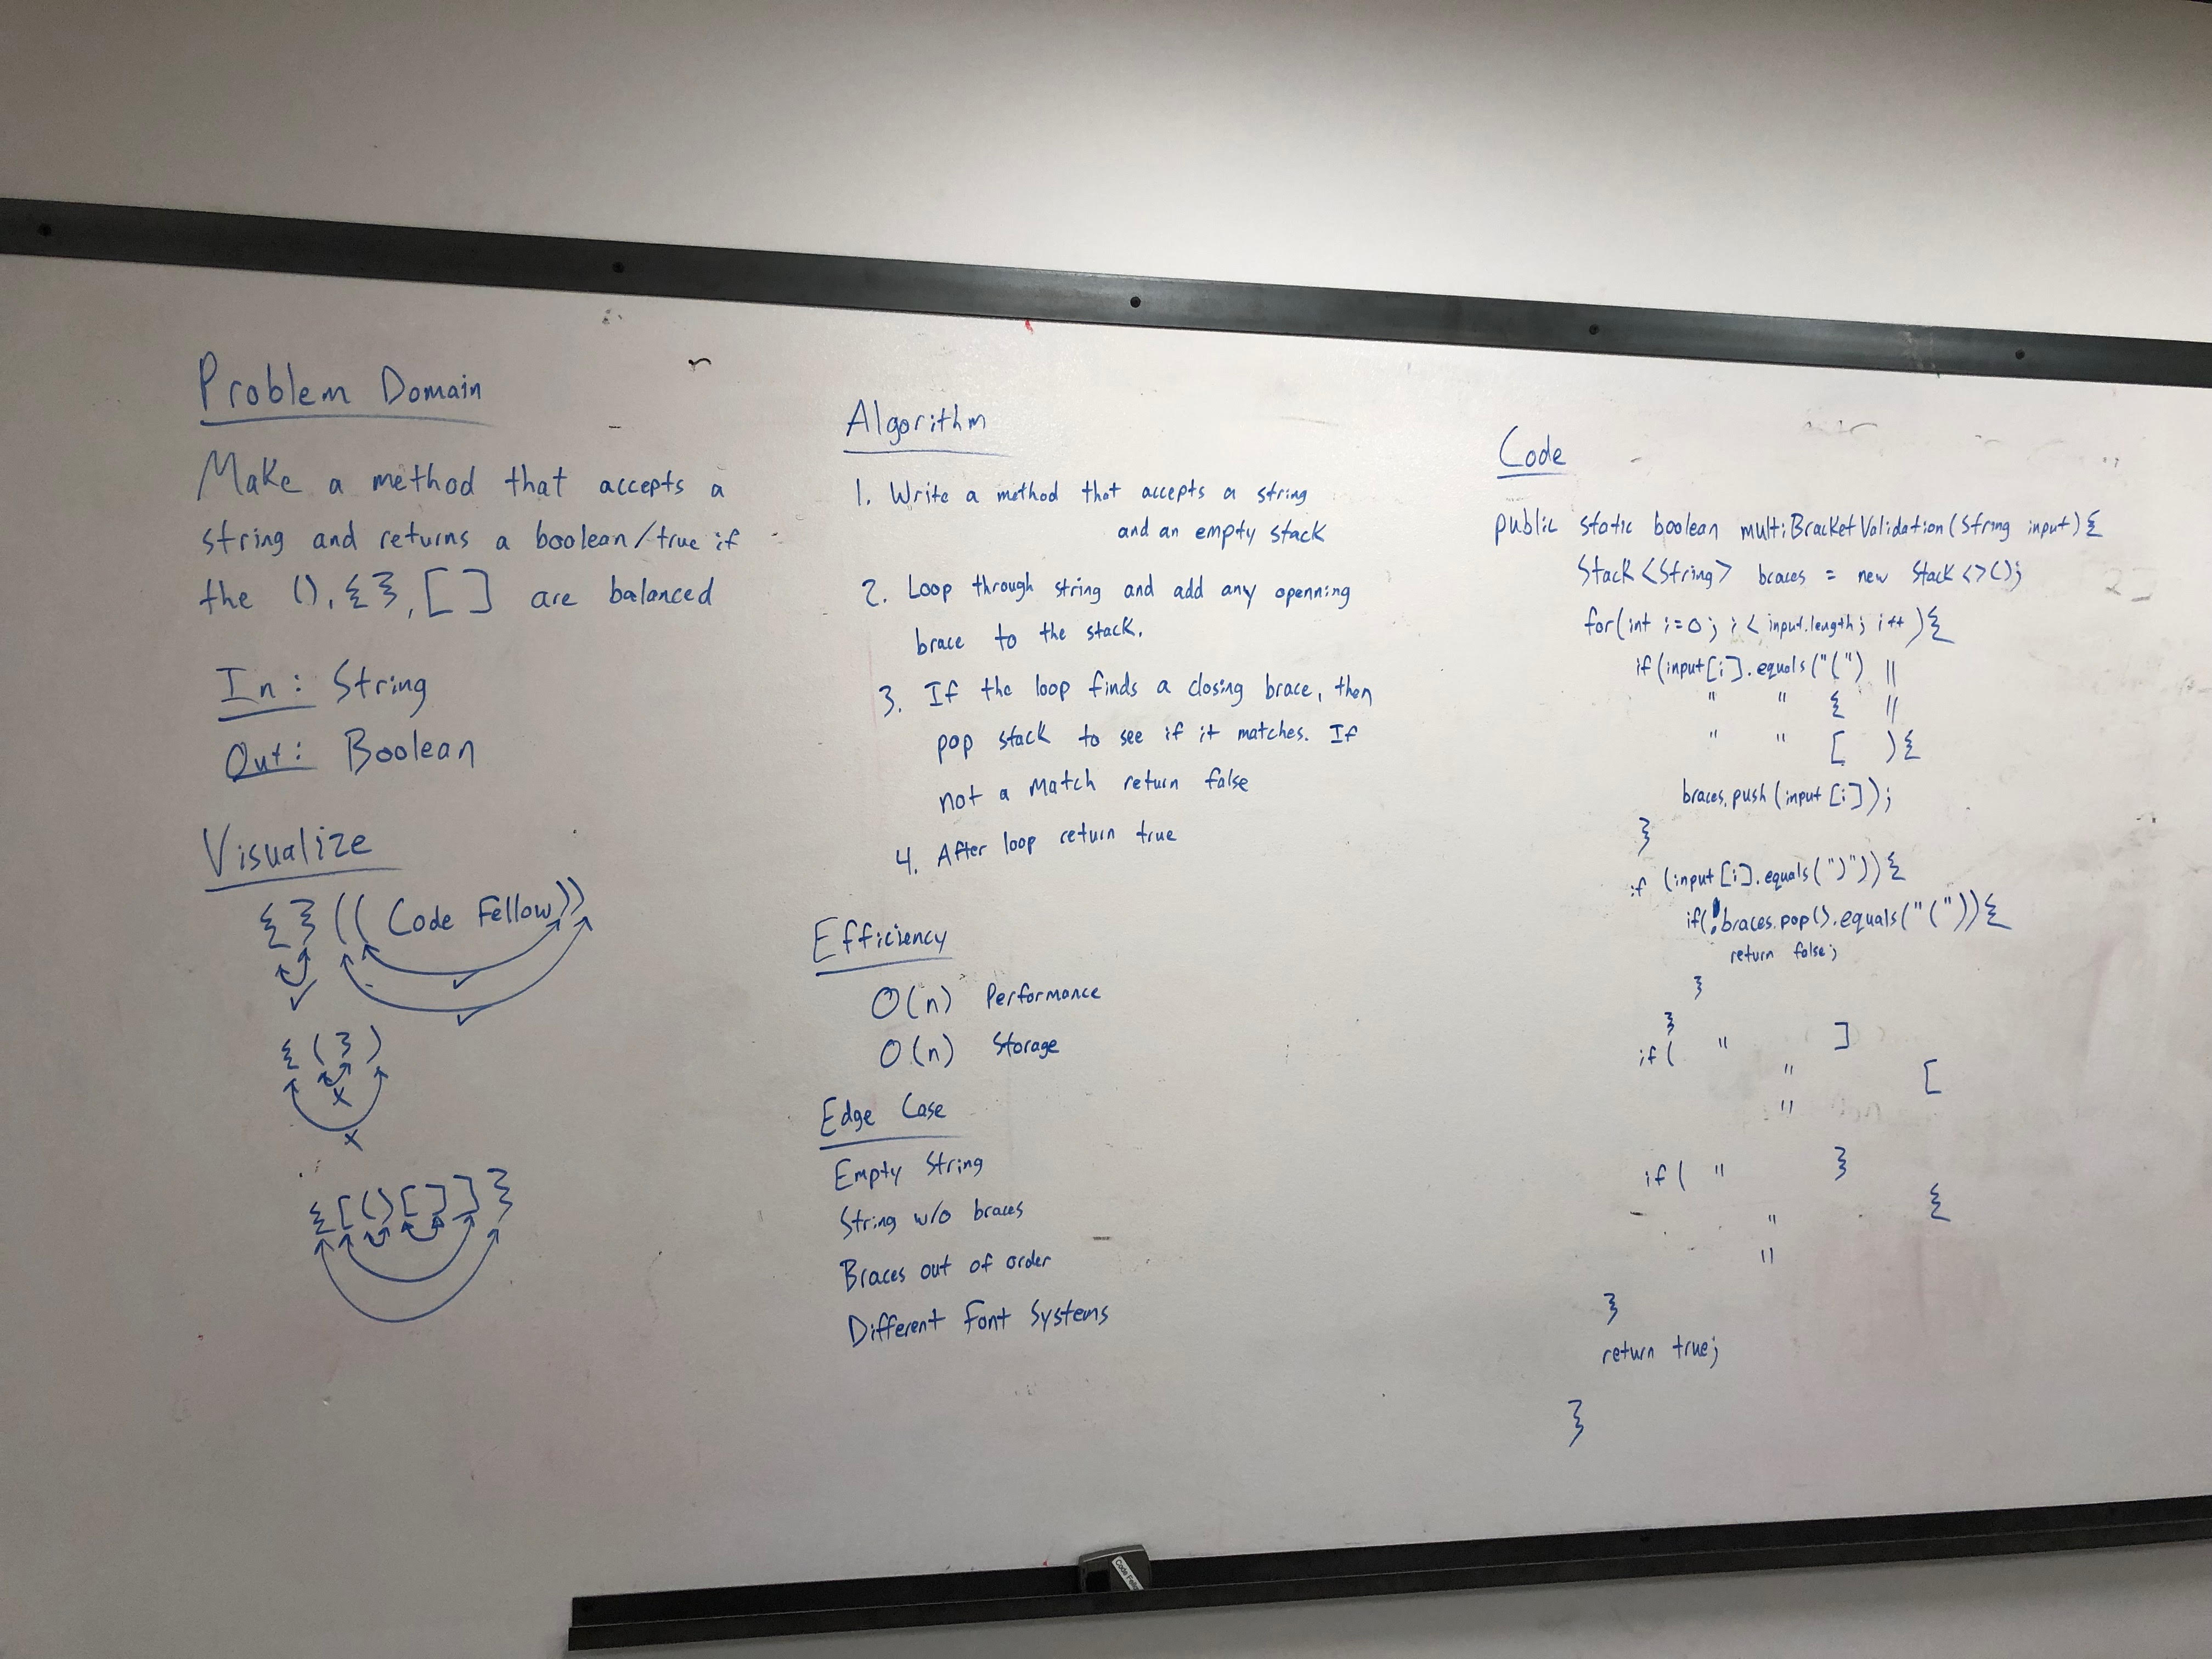 Problem Domain
Make a method that accepts a
string and returns a boolean/true if
the (), {}, [] are balanced
In: String
Out: Boolean
Visualize
{}((Code Fellow))
{(})
{[()[]]}
Algorithm
1. Write a method that accepts a string
and an empty stack
2. Loop through string and add any openning
brace to the stack.
3. If the loop finds a closing brace, then
pop stack to see if it matches. If
not a match return false
4. After loop return true
Efficiency
O(n) Performance
O(n) Storage
Edge Case
Empty String
String w/o braces
Braces out of order
Different Font Systems
Code
public static boolean multiBracketValidation(String input){
Stack<String> braces = new Stack<>();
for(int i=0; i < input.length; i++){
if(input[i].equals("(") ||
" " { ||
" " [ ){
braces.push(input[i]);
}
if (input[i].equals(")")){
if(!braces.pop().equals("(")){
return false;
}
}
if( " ]
" [
"
if( " }
" {
"
}
return true;
}
Code Fello